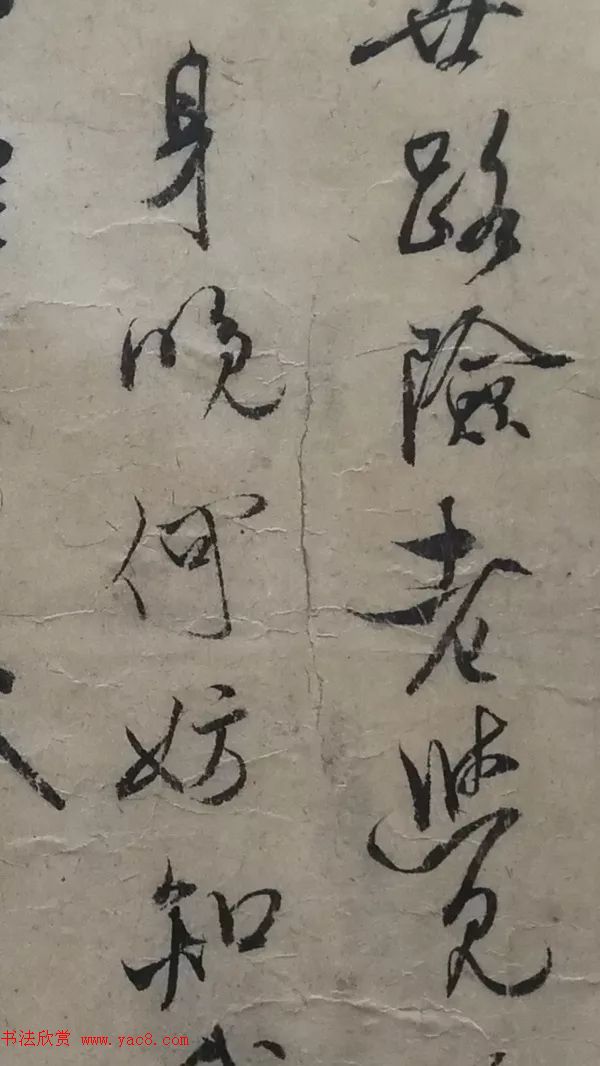 世路險老覺
身晚何妨知
书法欣赏 www.yac8.com